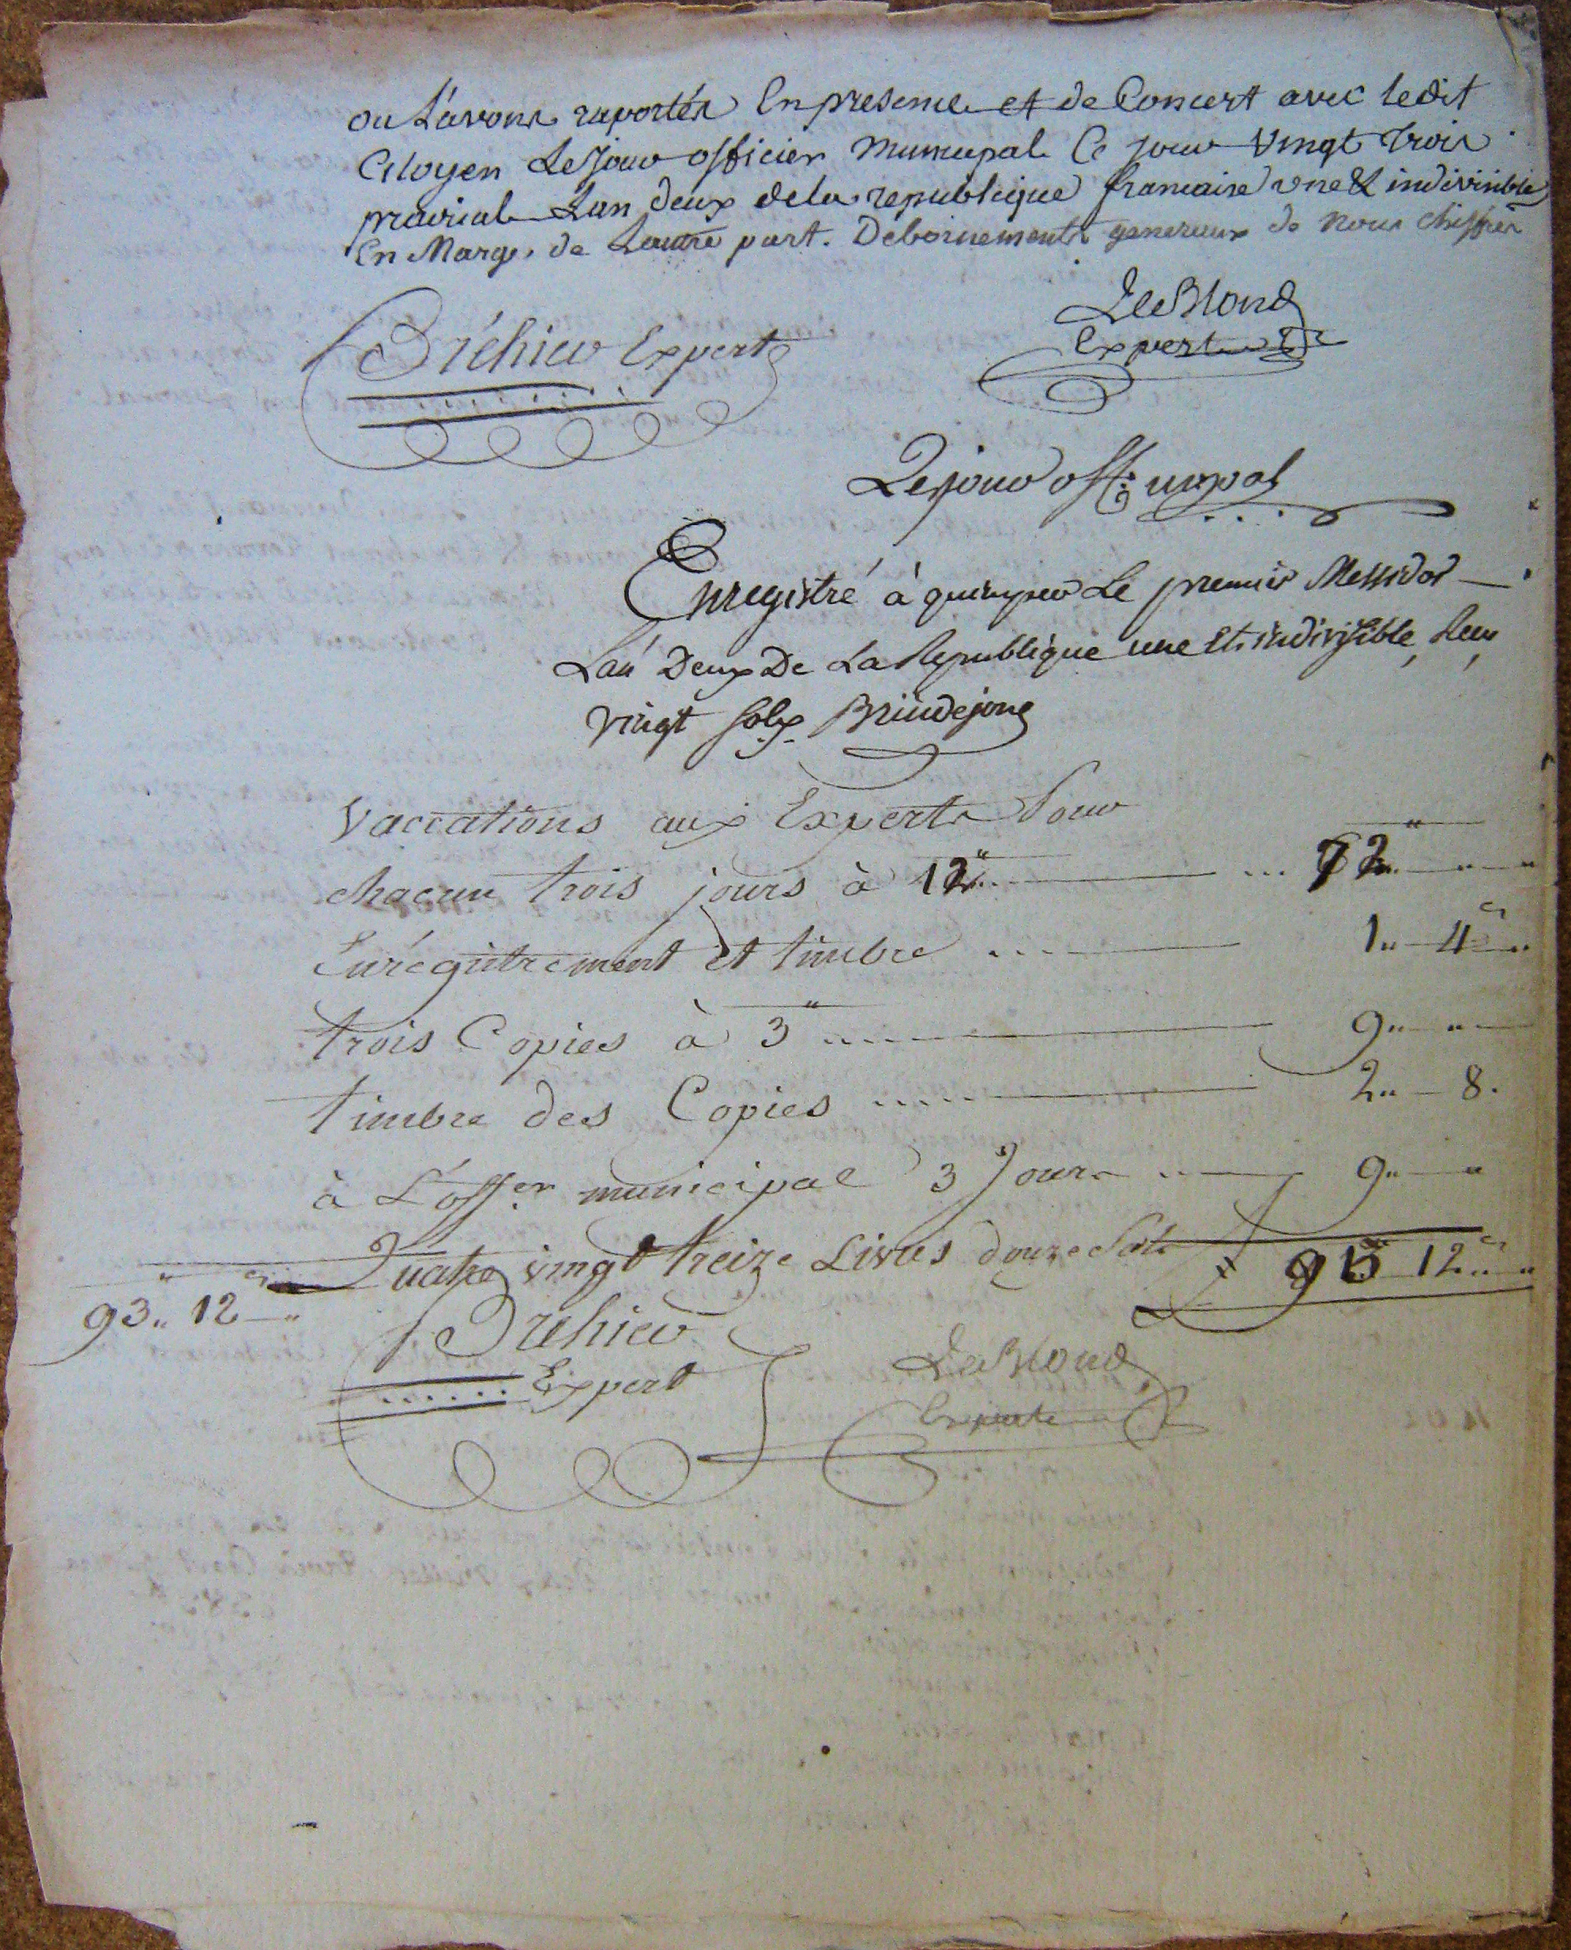 ou L'avons raportés En presence et de Concert avec ledit
Citoyen Lejour officier Municipal Ce jour Vingt trois
prairial L'an deux de la republique francaise une & indivisible
En Marge, de Lautre part. Debornements generaux de nous chiffrés
Bréhier Expert
LeBlond
Expert
Lejour off. mpal
Enregistré à quimper Le premier Messidor
L'an Deux De La Republique une Et indivisible, Reçu
vingt sols Brindejonc
Vaccations aux Experts Pour
chacun trois jours à 12" ... 72" " "
Enrégistrement et timbre .... 1" 4 "
trois Copies à 3" .... 9" "
timbre des Copies .... 2" 8.
à L'offer municipal 3 Jours .. 9" "
Quatre vingt treize Livres douze Sols 93 12 " "
93" 12 "
Bréhier
Expert
LeBlond
Expert